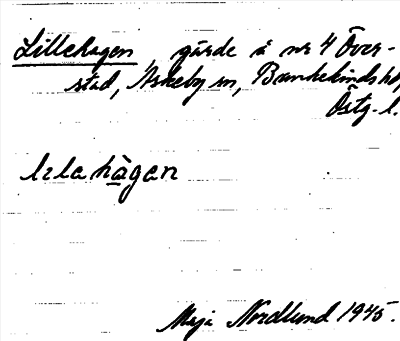 Lillehagen gärde å nr 4 Över-
stad, Askeby sn, Bankekinds hd,
Östg. l.
lılahàgan
Maja Nordlund 1945.